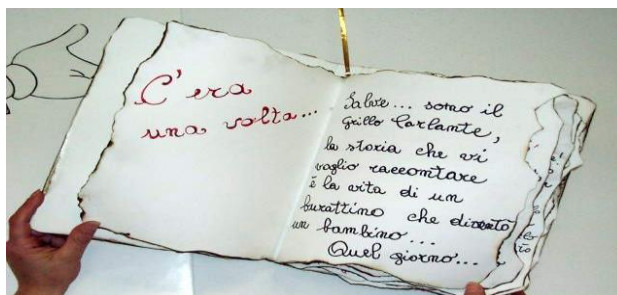 C'era
una volta...
Salve... sono il
grillo Parlante,
la storia che vi
voglio raccontare
è la vita di un
burattino che diventò
un bambino...
Quel giorno...